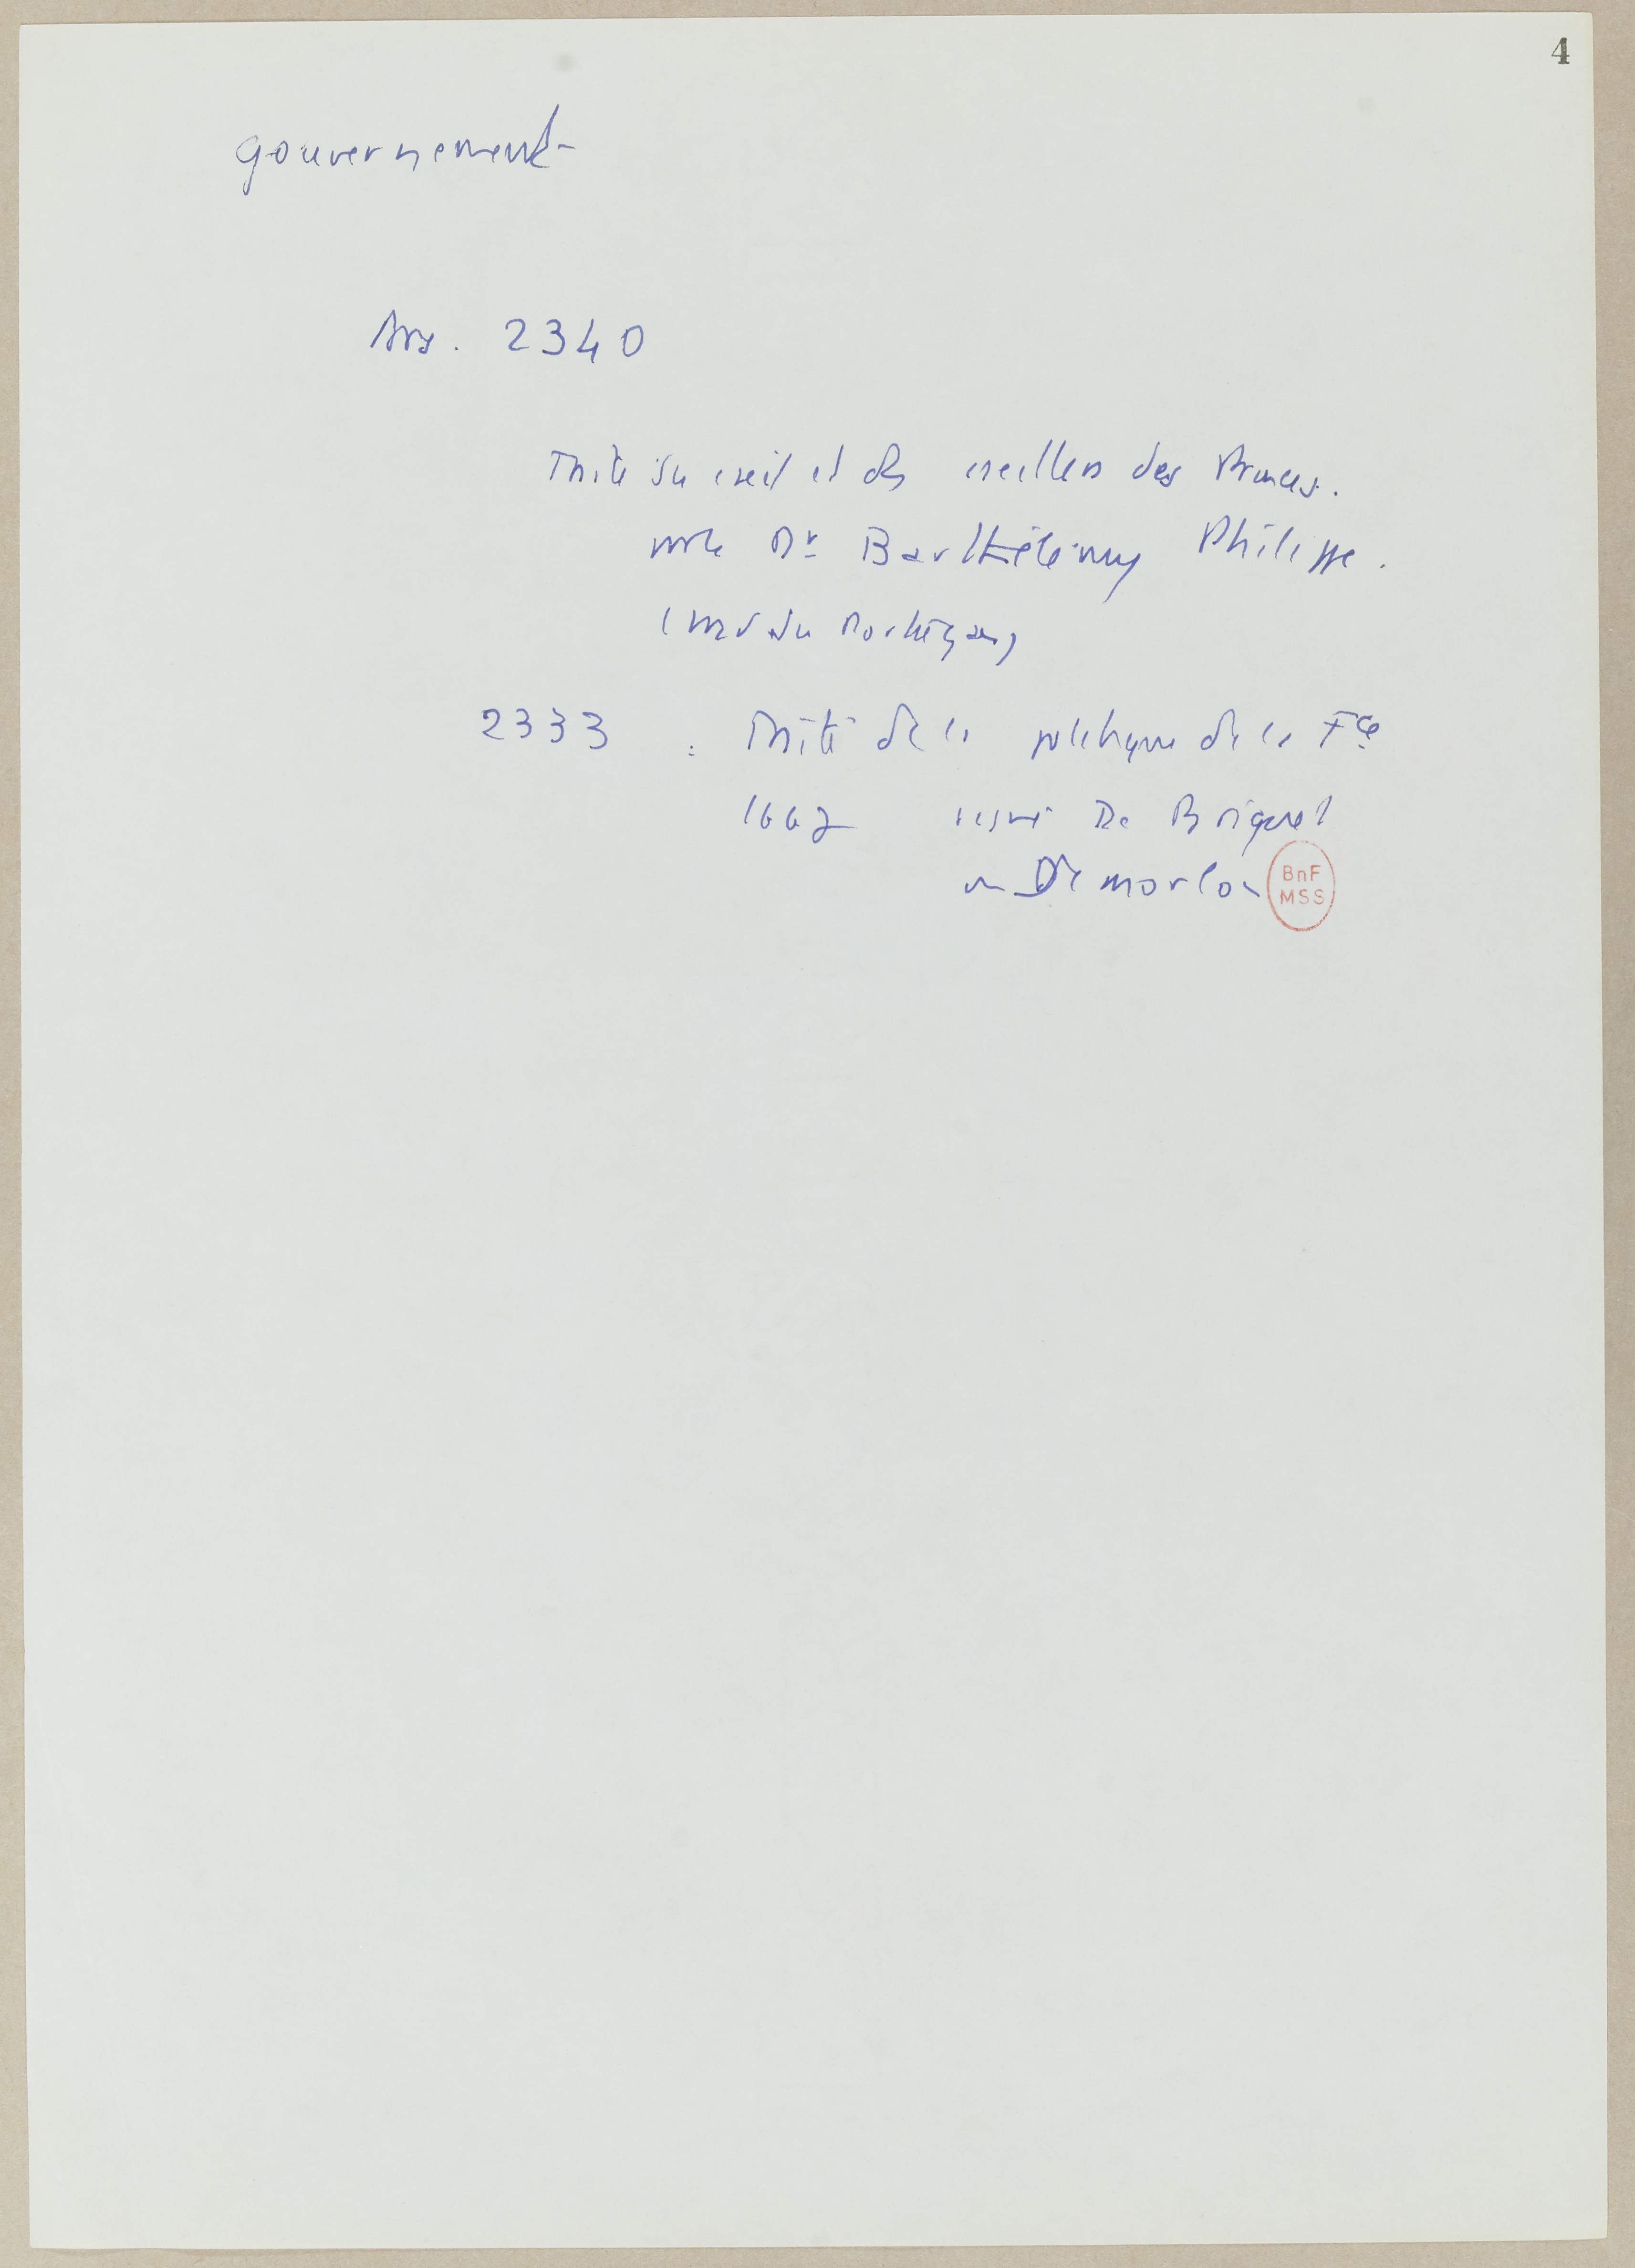 4
gouvernement
Ars. 2340
Traité du conseil et des conseillers des Princes.
Mr Barthélemy Philippe.
2333 : Traité de la politique de la Fce
1667 De Briquet
Demorlon
BnF
MSS